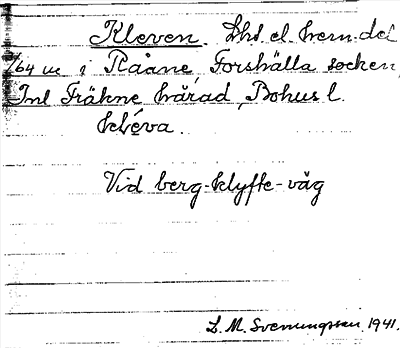 Kleven. Lhs el. hem.del
1/64 m i Råane, Forshälla socken,
Inl Fräkne härad, Bohusl.
kléva.
Vid berg-klyfte-väg
L. M. Svenungsson, 1941.